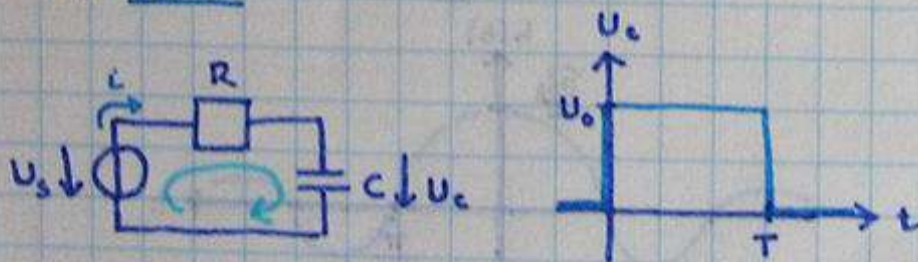 i R
U_s C U_c
U_c
U_0
T t